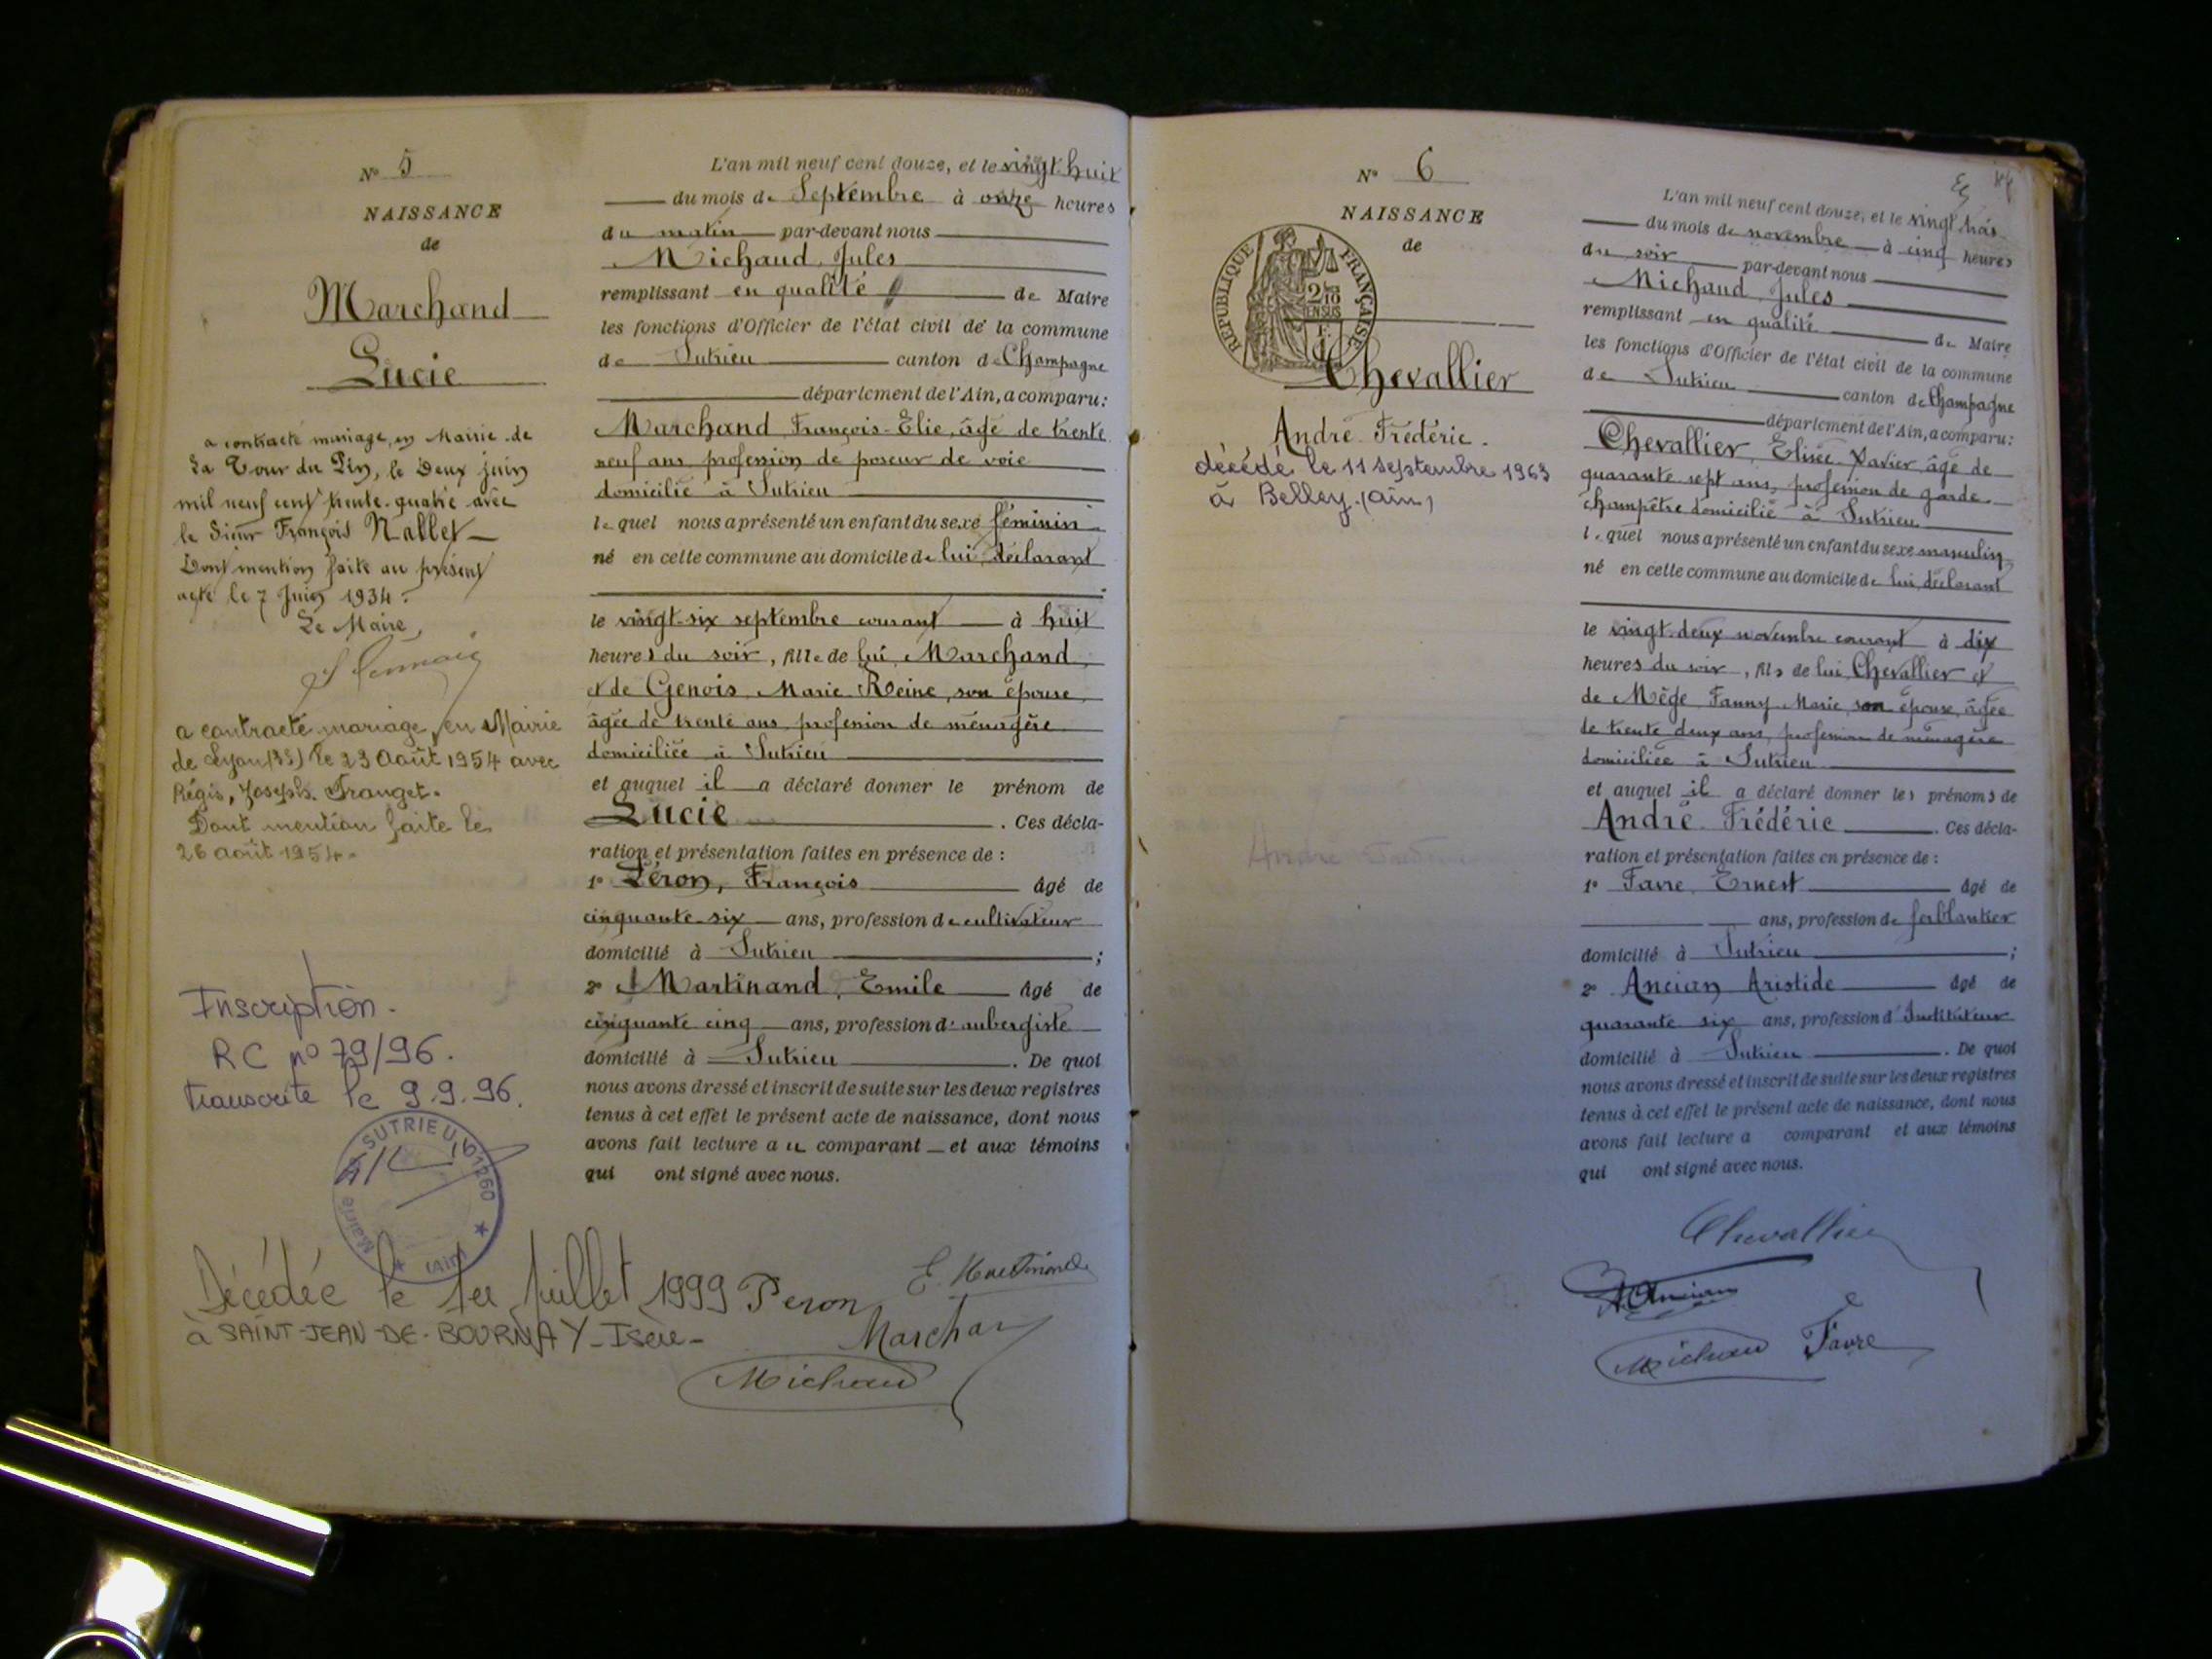 N° 5
NAISSANCE
de
Marchand
Lucie
a contracté mariage en Mairie de
La Tour du Pin, le Deux juin
mil neuf cent trente-quatre avec
le Sieur François Nallet
Dont mention faite au présent
acte le 7 Juin 1934.
Le Maire,
a contracté mariage en Mairie
de Lyon (3e) le 23 Août 1954 avec
Régis, Joseph. Franget.
Dont mention faite le
26 août 1954.
Inscription.
RC n° 79/96.
transcrite le 9.9.96.
Mairie SUTRIEU 01260 (Ain)
Décédée le 1er Juillet 1999
à SAINT-JEAN-DE-BOURNAY-Isère-
L'an mil neuf cent douze, et le vingt huit
du mois de Septembre à onze heures
du matin par-devant nous
Michaud Jules
remplissant en qualité de Maire
les fonctions d'Officier de l'état civil de la commune
de Sutrieu canton de Champagne
département de l'Ain, a comparu:
Marchand François-Elie, âgé de trente
neuf ans, profession de poseur de voie
domicilié à Sutrieu
lequel nous a présenté un enfant du sexe féminin
né en cette commune au domicile de lui déclarant
le vingt-six septembre courant à huit
heures du soir, fille de lui Marchand
et de Genois Marie Reine, son épouse,
âgée de trente ans, profession de ménagère
domiciliée à Sutrieu
et auquel il a déclaré donner le prénom de
Lucie. Ces décla-
ration et présentation faites en présence de :
1° Péron, François âgé de
cinquante-six ans, profession de cultivateur
domicilié à Sutrieu ;
2° Martinand, Emile âgé de
cinquante cinq ans, profession d'aubergiste
domicilié à Sutrieu. De quoi
nous avons dressé et inscrit de suite sur les deux registres
tenus à cet effet le présent acte de naissance, dont nous
avons fait lecture au comparant et aux témoins
qui ont signé avec nous.
Peron E. Martinand
Marchand
Michaud
N° 6
NAISSANCE
de
RÉPUBLIQUE FRANÇAISE
2/10 EN SUS
Chevallier
André Frédéric.
décédé le 11 septembre 1963
à Belley. (Ain)
L'an mil neuf cent douze, et le vingt trois
du mois de novembre à cinq heures
du soir par-devant nous
Michaud Jules
remplissant en qualité de Maire
les fonctions d'Officier de l'état civil de la commune
de Sutrieu canton de Champagne
département de l'Ain, a comparu:
Chevallier, Elisée Xavier âgé de
quarante sept ans, profession de garde-
champêtre domicilié à Sutrieu
lequel nous a présenté un enfant du sexe masculin
né en cette commune au domicile de lui déclarant
le vingt-deux novembre courant à dix
heures du soir, fils de lui Chevallier et
de Mège Fanny Marie son épouse, âgée
de trente deux ans, profession de ménagère
domiciliée à Sutrieu
et auquel il a déclaré donner les prénoms de
André Frédéric. Ces décla-
ration et présentation faites en présence de :
1° Favre Ernest âgé de
ans, profession de ferblantier
domicilié à Sutrieu ;
2° Ancian Aristide âgé de
quarante six ans, profession d'Instituteur
domicilié à Sutrieu. De quoi
nous avons dressé et inscrit de suite sur les deux registres
tenus à cet effet le présent acte de naissance, dont nous
avons fait lecture a comparant et aux témoins
qui ont signé avec nous.
Chevallier
A Ancian
Michaud Favre